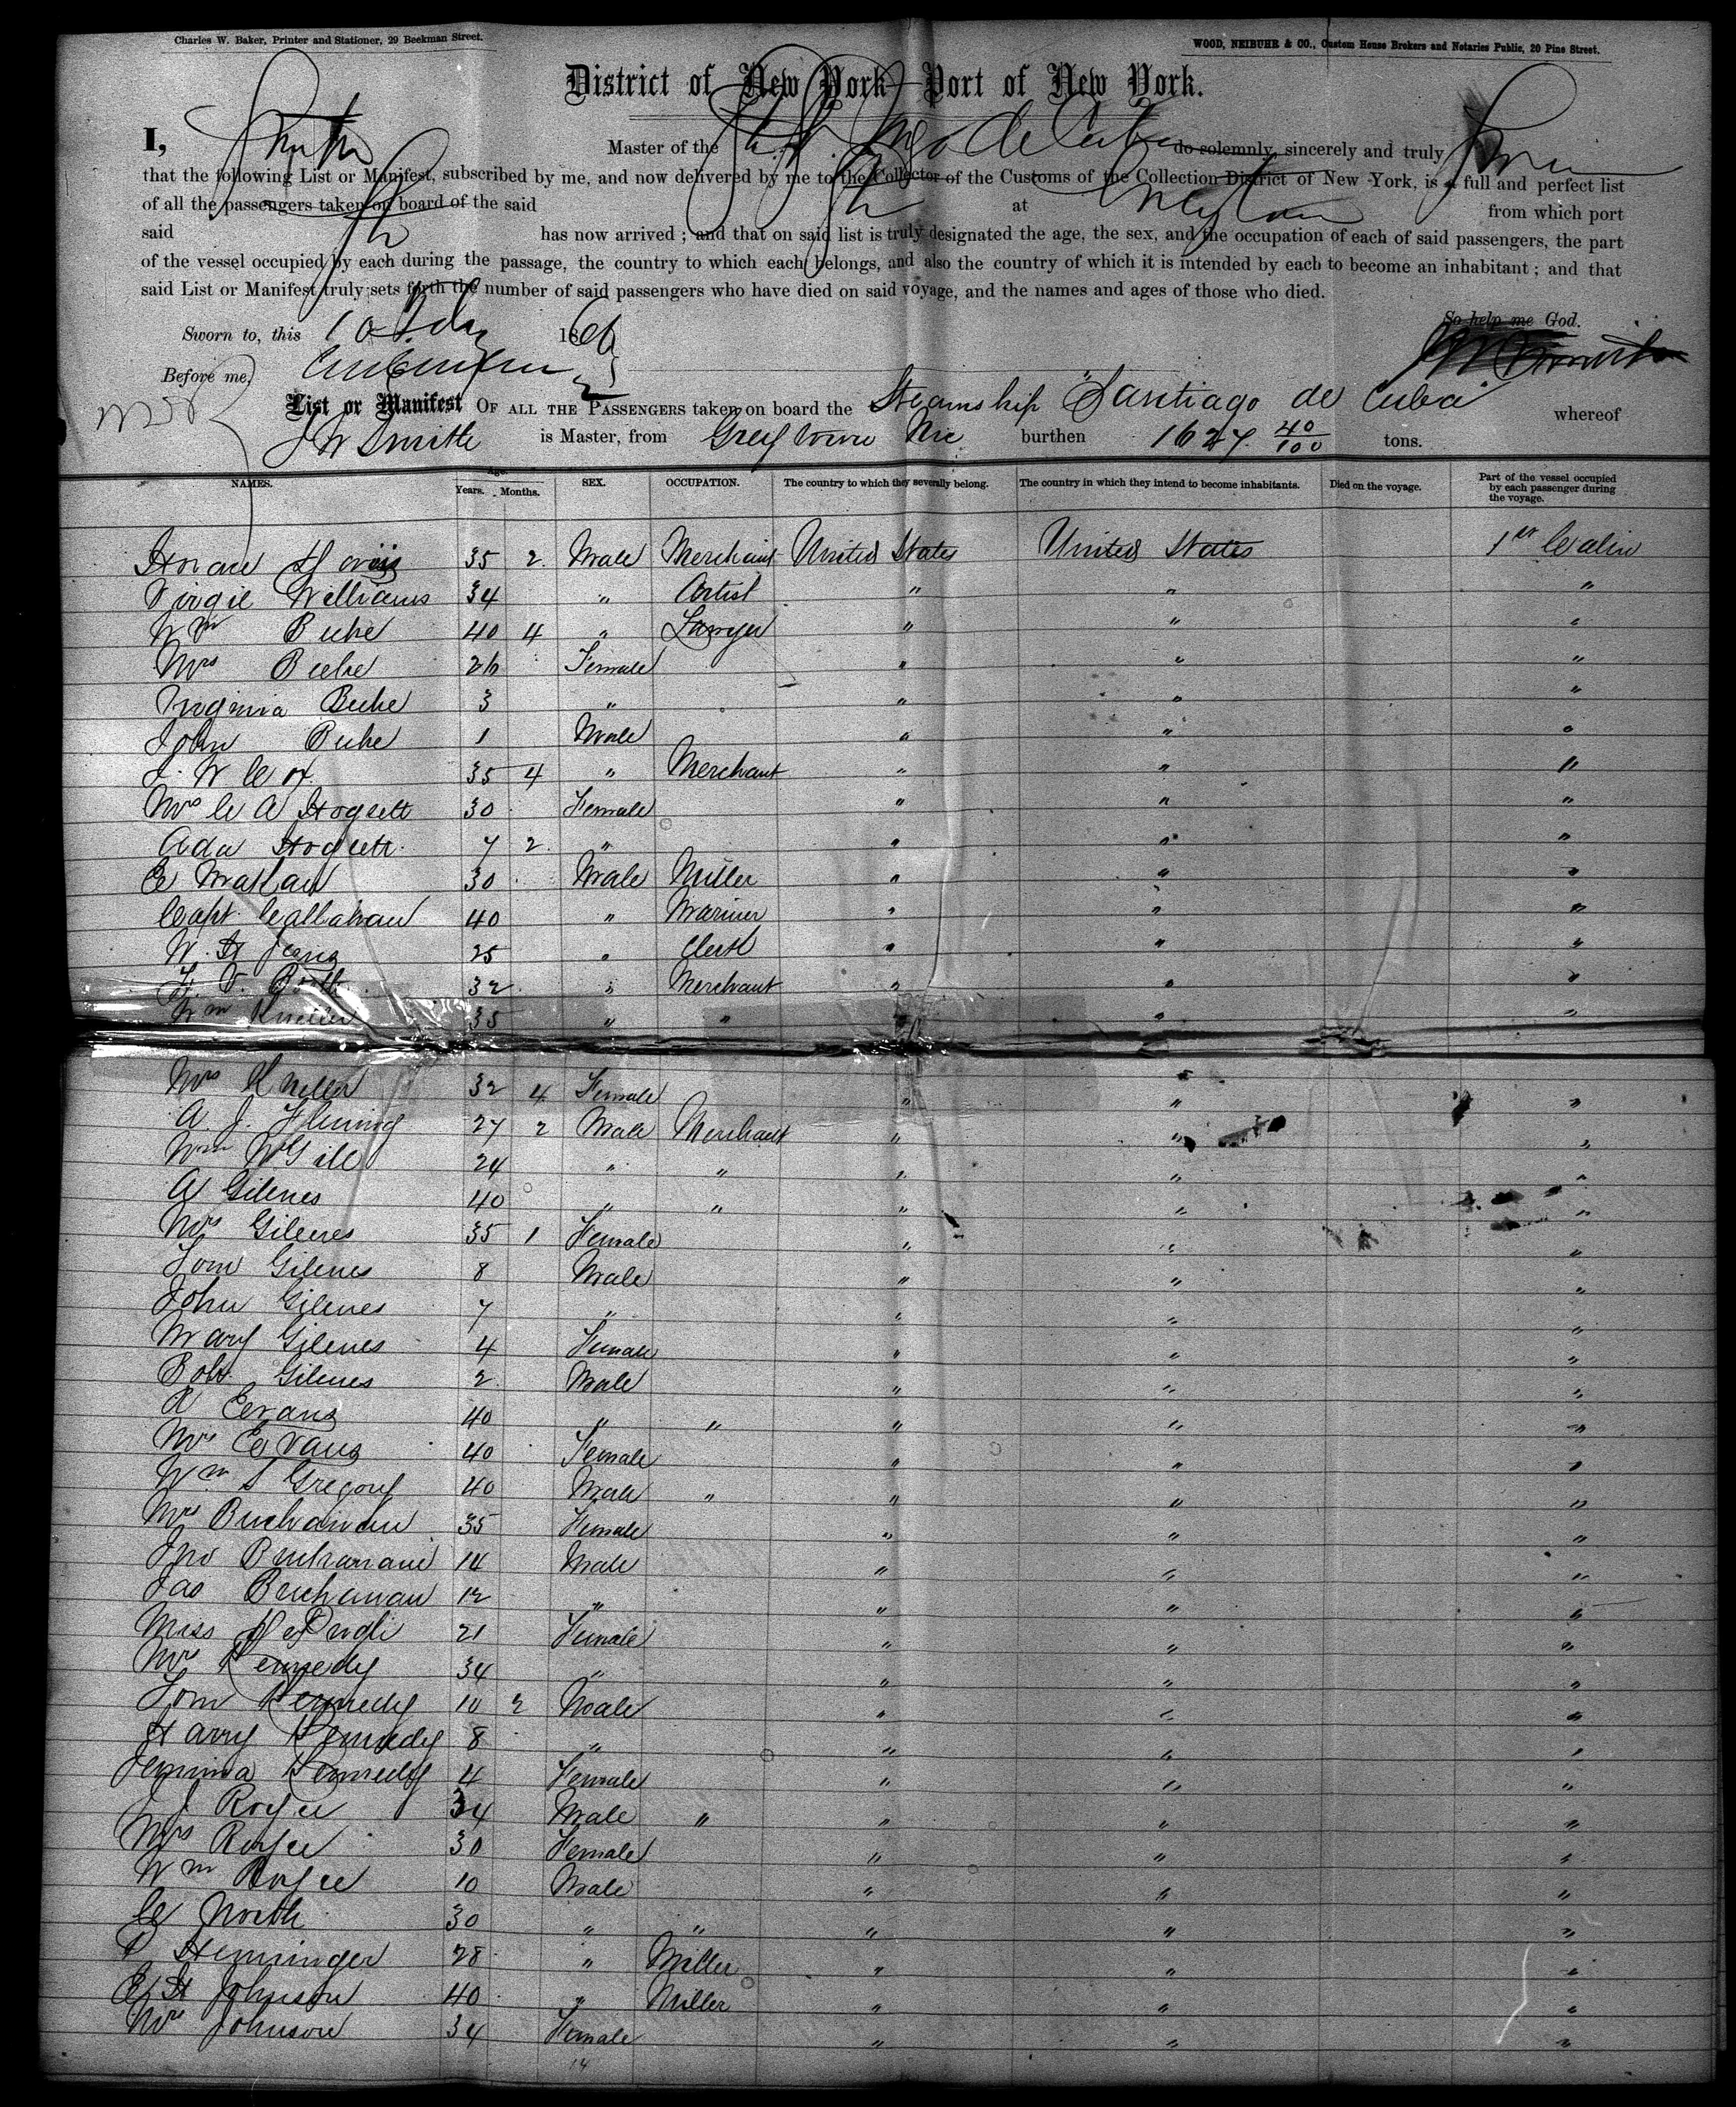 Charles W. Baker, Printer and Stationer, 29 Beekman Street.
WOOD, NEIBUHR & CO., Custom House Brokers and Notaries Public, 20 Pine Street.
District of New York—Port of New York.
I, Smith Master of the de Cuba do solemnly, sincerely and truly
that the following List or Manifest, subscribed by me, and now delivered by me to the Collector of the Customs of the Collection District of New York, is a full and perfect list
of all the passengers taken on board of the said at from which port
said has now arrived; and that on said list is truly designated the age, the sex, and the occupation of each of said passengers, the part
of the vessel occupied by each during the passage, the country to which each belongs, and also the country of which it is intended by each to become an inhabitant; and that
said List or Manifest truly sets forth the number of said passengers who have died on said voyage, and the names and ages of those who died.
So help me God.
Sworn to, this 10 186
Before me,
List or Manifest OF ALL THE PASSENGERS taken on board the Steamship "Santiago de Cuba" whereof
J W Smith is Master, from Greytown Nic burthen 1627 40/100 tons.
NAMES. Age. Years. Months. SEX. OCCUPATION. The country to which they severally belong. The country in which they intend to become inhabitants. Died on the voyage. Part of the vessel occupied by each passenger during the voyage.
Horace 35 2 Male Merchant United States United States 1st Cabin
Virgil Williams 34 " Artist " " "
Wm Beebe 40 4 " Lawyer " " "
Mrs Beebe 26 Female " " "
Virginia Beebe 3 " " " "
John Beebe 1 Male " " "
J. W Cox 35 4 " Merchant " " "
Mrs C A Hogsett 30 Female " " "
Ada Hogsett 7 2 " " " "
30 Male Miller " " "
Capt Callahan 40 " Mariner " " "
W. H 25 " Clerk " " "
32 " Merchant " " "
Wm Kneller 35 " " " " "
Mrs Kneller 32 4 Female " " "
A. J. Fleming 27 2 Male Merchant " " "
Wm McGill 24 " " " " "
A Gilenes 40 " " " " "
Mrs Gilenes 35 1 Female " " "
Tom Gilenes 8 Male " " "
John Gilenes 7 " " " "
Mary Gilenes 4 Female " " "
Robt Gilenes 2 Male " " "
R Evans 40 " " " " "
Mrs Evans 40 Female " " "
Wm S Gregory 40 Male " " " "
Mrs Buchanan 35 Female " " "
Jno Buchanan 14 Male " " "
Jas Buchanan 12 " " " "
Miss 21 Female " " "
Mrs Kennedy 34 " " " "
Tom Kennedy 10 2 Male " " "
Harry Kennedy 8 " " " "
Jemima Kennedy 4 Female " " "
J Royce 34 Male " " " "
Mrs Royce 30 Female " " "
Wm Royce 10 Male " " "
C North 30 " " " " "
D Henninger 28 " Miller " " "
E H Johnson 40 " Miller " " "
Mrs Johnson 34 Female " " "
14